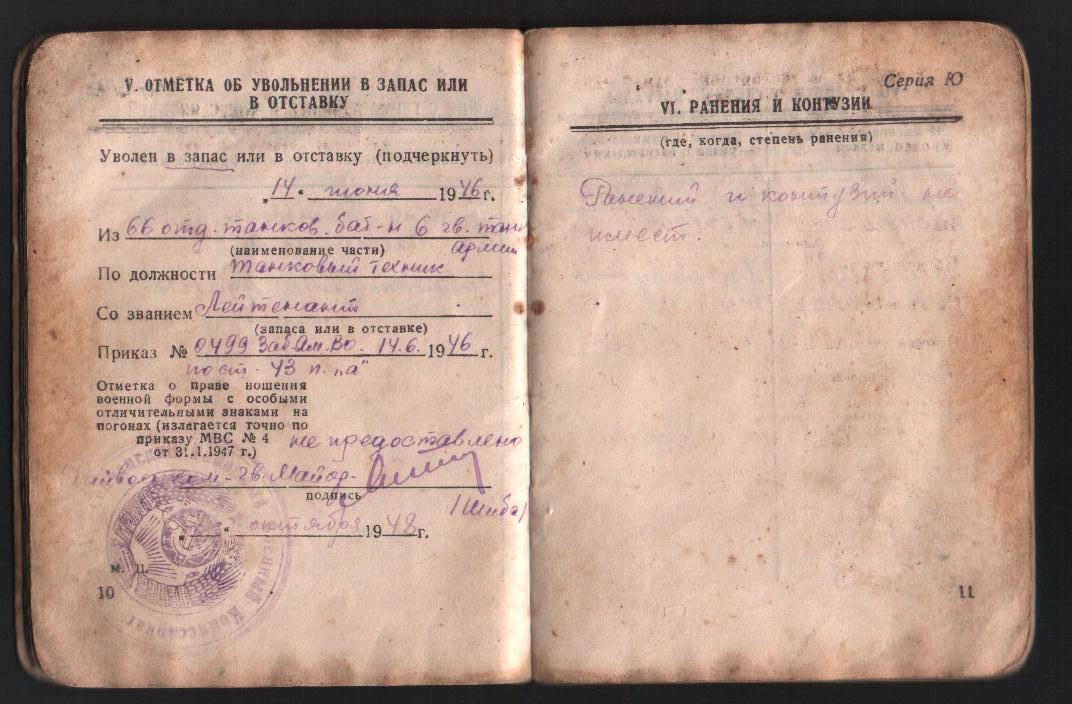 V. ОТМЕТКА ОБ УВОЛЬНЕНИИ В ЗАПАС ИЛИ
В ОТСТАВКУ
Уволен в запас или в отставку (подчеркнуть)
„14“ июня 1946 г.
Из 66 отд. танков. бат-н 6 гв. танк
армии
(наименование части)
По должности танковый техник
Со званием Лейтенант
(запаса или в отставке)
Приказ № 0499 Заб.Ам.Во. 14.6. 1946 г.
пост. 43 п. „а“
Отметка о праве ношения
военной формы с особыми
отличительными знаками на
погонах (излагается точно по
приказу МВС № 4
от 31.1.1947 г.) не предоставлено
Райвоенком - гв. Майор-
подпись
(Шиба)
„ “ октября 1948 г.
м. п.
Военный Комиссариат
10
Серия Ю
VI. РАНЕНИЯ И КОНТУЗИИ
(где, когда, степень ранения)
Ранений и контузий не
имеет.
11